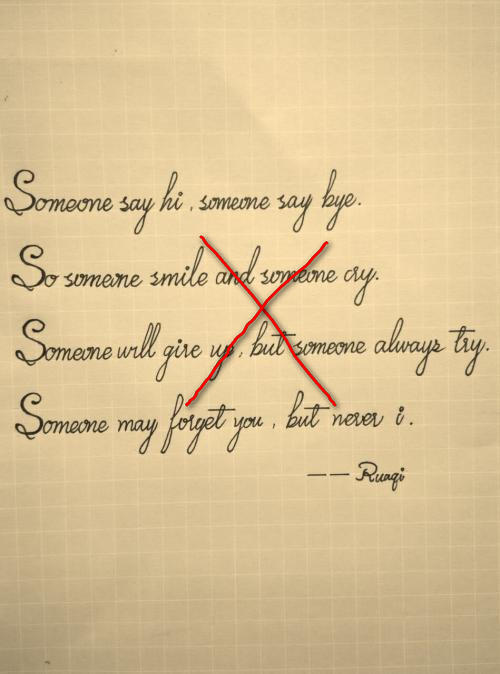 Someone say hi , someone say bye.
So someone smile and someone cry.
Someone will give up , but someone always try.
Someone may forget you , but never i .
—— Ruaqi